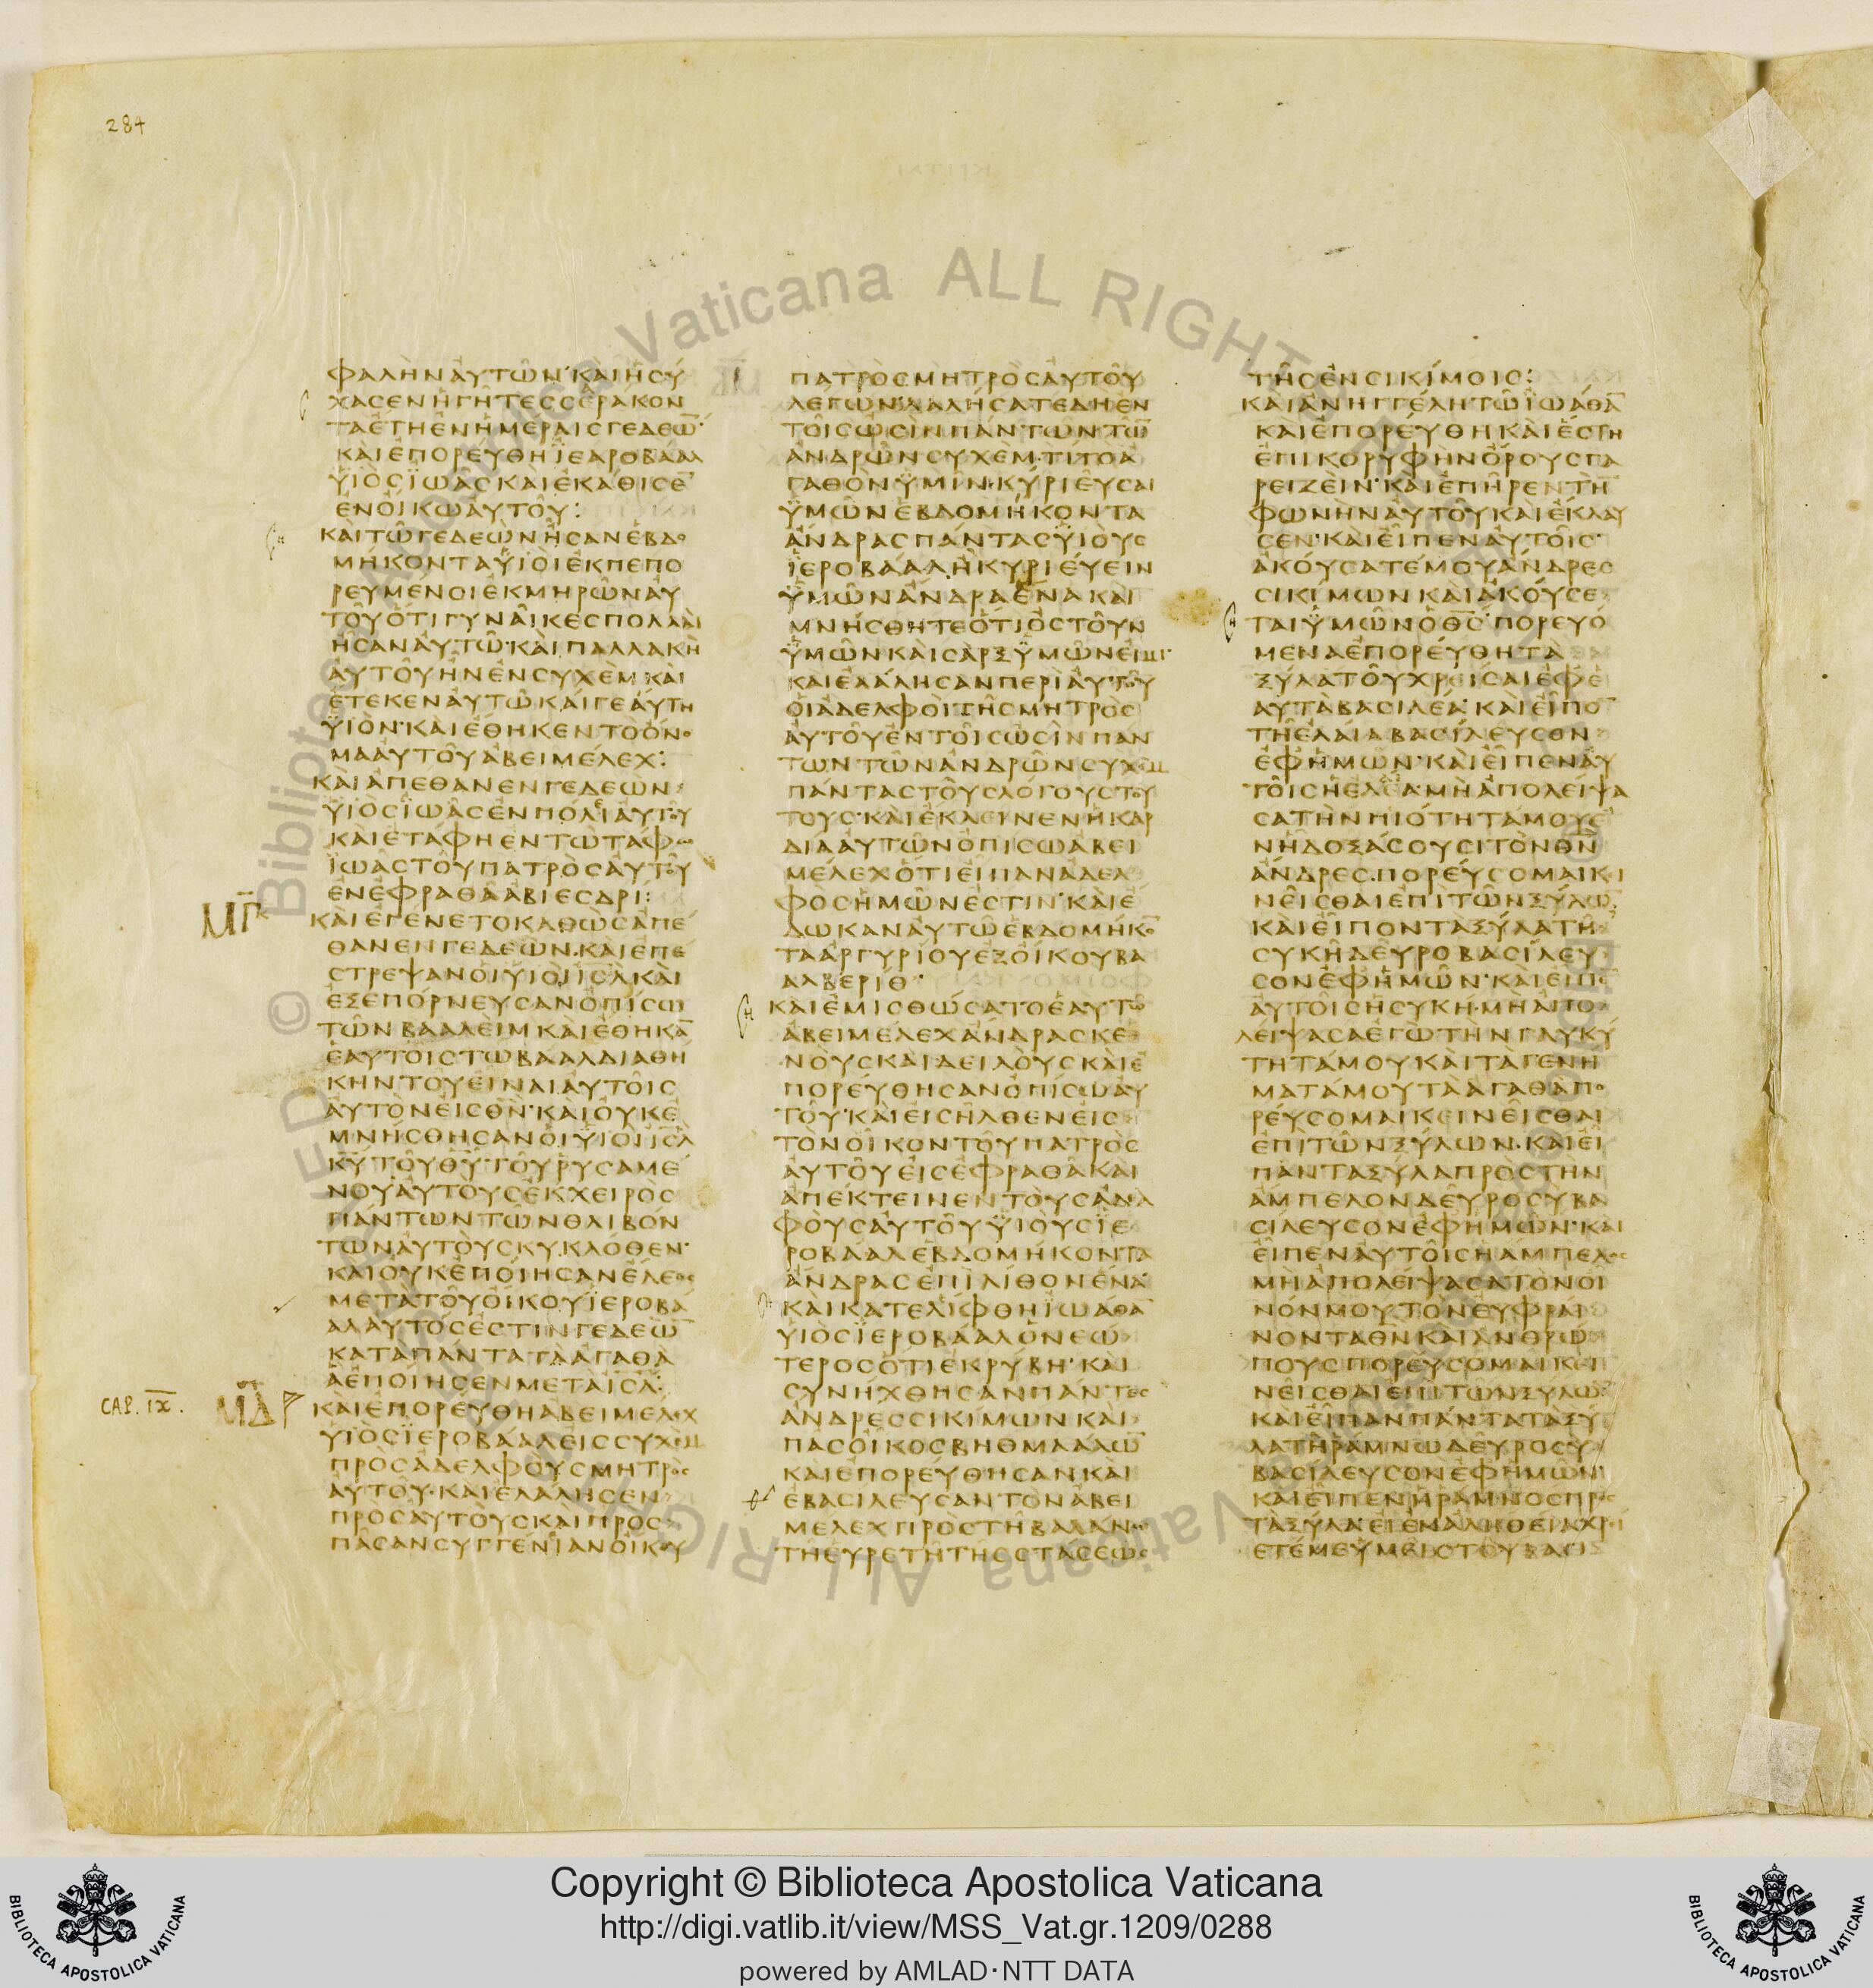 284
ΦΑΛῊΝΑΥΤΩΝ·ΚΑΙΗΣΥ
ΧΑΣΕΝΗΓΗΤΕΣΣΕΡΑΚΟΝ
ΤΑΕΤΗΕΝΗΜΕΡΑΙΣΓΕΔΕΩ̅·
ΚΑΙΕΠΟΡΕΥΘΗΪΕΑΡΟΒΑΑΛ
ΫΙΟΣΪΩΑΣΚΑΙΕΚΑΘΙΣΕ̅
ΕΝΟΙΚΩΑΥΤΟΥ:
ΚΑΙΤΩΓΕΔΕΩΝΗΣΑΝΕΒΔΟ
ΜΗΚΟΝΤΑΫΙΟΙΕΚΠΕΠΟ
ΡΕΥΜΕΝΟΙΕΚΜΗΡΩΝΑΥ
ΤΟΥΟΤΙΓΥΝΑΙΚΕΣΠΟΛΛΑΙ
ΗΣΑΝΑΥΤΩ·ΚΑΙΠΑΛΛΑΚΗ
ΑΥΤΟΥΗΝΕΝΣΥΧΕΜΚΑΙ
ΕΤΕΚΕΝΑΥΤΩΚΑΙΓΕΑΥΤΗ
ΫΙΟΝ·ΚΑΙΕΘΗΚΕΝΤΟΟΝΟ
ΜΑΑΥΤΟΥΑΒΕΙΜΕΛΕΧ:
ΚΑΙΑΠΕΘΑΝΕΝΓΕΔΕΩΝ
ΫΙΟΣΪΩΑΣΕΝΠΟΛΙΑΥΤΟΥ
ΚΑΙΕΤΑΦΗΕΝΤΩΤΑΦΩ
ΪΩΑΣΤΟΥΠΑΤΡΟΣΑΥΤΟΥ
ΕΝΕΦΡΑΘΑΑΒΙΕΣΔΡΙ:
ΜΓ ΚΑΙΕΓΕΝΕΤΟΚΑΘΩΣΑΠΕ
ΘΑΝΕΝΓΕΔΕΩΝ·ΚΑΙΕΠΕ
ΣΤΡΕΨΑΝΟΙΫΙΟΙΙ̅Σ̅Λ̅ΚΑΙ
ΕΞΕΠΟΡΝΕΥΣΑΝΟΠΙΣΩ
ΤΩΝΒΑΑΛΕΙΜΚΑΙΕΘΗΚΑ̅
ΕΑΥΤΟΙΣΤΩΒΑΑΛΔΙΑΘΗ
ΚΗΝΤΟΥΕΙΝΑΙΑΥΤΟΙΣ
ΑΥΤΟΝΕΙΣΘ̅Ν̅·ΚΑΙΟΥΚΕ
ΜΝΗΣΘΗΣΑΝΟΙΫΙΟΙΙ̅Σ̅Λ̅
Κ̅Υ̅ΤΟΥΘ̅Υ̅ΤΟΥΡΥΣΑΜΕ
ΝΟΥΑΥΤΟΥΣΕΚΧΕΙΡΟΣ
ΠΑΝΤΩΝΤΩΝΘΛΙΒΟΝ
ΤΩΝΑΥΤΟΥΣΚΥΚΛΟΘΕΝ·
ΚΑΙΟΥΚΕΠΟΙΗΣΑΝΕΛΕΟΣ
ΜΕΤΑΤΟΥΟΙΚΟΥΪΕΡΟΒΑ
ΑΛΑΥΤΟΣΕΣΤΙΝΓΕΔΕΩ̅
ΚΑΤΑΠΑΝΤΑΤΑΑΓΑΘΑ
ΑΕΠΟΙΗΣΕΝΜΕΤΑΙ̅Σ̅Λ̅:
CAP. IX. ΜΔ ΚΑΙΕΠΟΡΕΥΘΗΑΒΕΙΜΕΛΕΧ
ΫΙΟΣΪΕΡΟΒΑΑΛΕΙΣΣΥΧΕΜ
ΠΡΟΣΑΔΕΛΦΟΥΣΜΗΤΡΟΣ
ΑΥΤΟΥ·ΚΑΙΕΛΑΛΗΣΕΝ
ΠΡΟΣΑΥΤΟΥΣΚΑΙΠΡΟΣ
ΠΑΣΑΝΣΥΓΓΕΝΙΑΝΟΙΚΟΥ
ΠΑΤΡΟΣΜΗΤΡΟΣΑΥΤΟΥ
ΛΕΓΩΝΛΑΛΗΣΑΤΕΔΗΕΝ
ΤΟΙΣΩΣΙΝΠΑΝΤΩΝΤΩ̅
ΑΝΔΡΩΝΣΥΧΕΜ·ΤΙΤΟΑ
ΓΑΘΟΝΫΜΙΝ·ΚΥΡΙΕΥΣΑΙ
ΫΜΩΝΕΒΔΟΜΗΚΟΝΤΑ
ΑΝΔΡΑΣΠΑΝΤΑΣΫΙΟΥΣ
ΪΕΡΟΒΑΑΛΗΚΥΡΙΕΥΕΙΝ
ΫΜΩΝΑΝΔΡΑΕΝΑΚΑΙ
ΜΝΗΣΘΗΤΕΟΤΙΟΣΤΟΥΝ
ΫΜΩΝΚΑΙΣΑΡΞΫΜΩΝΕΙΜΙ·
ΚΑΙΕΛΑΛΗΣΑΝΠΕΡΙΑΥΤΟΥ
ΟΙΑΔΕΛΦΟΙΤΗΣΜΗΤΡΟΣ
ΑΥΤΟΥΕΝΤΟΙΣΩΣΙΝΠΑΝ
ΤΩΝΤΩΝΑΝΔΡΩΝΣΥΧΕΜ
ΠΑΝΤΑΣΤΟΥΣΛΟΓΟΥΣΤΟΥ
ΤΟΥΣ·ΚΑΙΕΚΛΕΙΝΕΝΗΚΑΡ
ΔΙΑΑΥΤΩΝΟΠΙΣΩΑΒΕΙ
ΜΕΛΕΧΟΤΙΕΙΠΑΝΑΔΕΛ
ΦΟΣΗΜΩΝΕΣΤΙΝ·ΚΑΙΕ
ΔΩΚΑΝΑΥΤΩΕΒΔΟΜΗΚΟ̅
ΤΑΑΡΓΥΡΙΟΥΕΞΟΙΚΟΥΒΑ
ΑΛΒΕΡΙΘ·
ΚΑΙΕΜΙΣΘΩΣΑΤΟΕΑΥΤΩ
ΑΒΕΙΜΕΛΕΧΑΝΔΡΑΣΚΕ
ΝΟΥΣΚΑΙΔΕΙΛΟΥΣΚΑΙΕ
ΠΟΡΕΥΘΗΣΑΝΟΠΙΣΩΑΥ
ΤΟΥ·ΚΑΙΕΙΣΗΛΘΕΝΕΙΣ
ΤΟΝΟΙΚΟΝΤΟΥΠΑΤΡΟΣ
ΑΥΤΟΥΕΙΣΕΦΡΑΘΑΚΑΙ
ΑΠΕΚΤΕΙΝΕΝΤΟΥΣΑΔΕΛ
ΦΟΥΣΑΥΤΟΥΫΙΟΥΣΪΕ
ΡΟΒΑΑΛΕΒΔΟΜΗΚΟΝΤΑ
ΑΝΔΡΑΣΕΠΙΛΙΘΟΝΕΝΑ
ΚΑΙΚΑΤΕΛΙΦΘΗΪΩΑΘΑ̅
ΫΙΟΣΪΕΡΟΒΑΑΛΟΝΕΩ
ΤΕΡΟΣΟΤΙΕΚΡΥΒΗ·ΚΑΙ
ΣΥΝΗΧΘΗΣΑΝΠΑΝΤΕΣ
ΑΝΔΡΕΣΣΙΚΙΜΩΝΚΑΙ
ΠΑΣΟΙΚΟΣΒΗΘΜΑΑΛΩ̅
ΚΑΙΕΠΟΡΕΥΘΗΣΑΝΚΑΙ
ΕΒΑΣΙΛΕΥΣΑΝΤΟΝΑΒΕΙ
ΜΕΛΕΧΠΡΟΣΤΗΒΑΛΑΝΩ
ΤΗΕΥΡΕΤΗΤΗΣΣΤΑΣΕΩΣ
ΤΗΣΕΝΣΙΚΙΜΟΙΣ:
ΚΑΙΑΝΗΓΓΕΛΗΤΩΪΩΑΘΑ̅
ΚΑΙΕΠΟΡΕΥΘΗΚΑΙΕΣΤΗ
ΕΠΙΚΟΡΥΦΗΝΟΡΟΥΣΓΑ
ΡΕΙΖΕΙΝ·ΚΑΙΕΠΗΡΕΝΤΗ̅
ΦΩΝΗΝΑΥΤΟΥΚΑΙΕΚΛΑΥ
ΣΕΝ·ΚΑΙΕΙΠΕΝΑΥΤΟΙΣ·
ΑΚΟΥΣΑΤΕΜΟΥΑΝΔΡΕΣ
ΣΙΚΙΜΩΝΚΑΙΑΚΟΥΣΕ
ΤΑΙΫΜΩΝΟΘ̅Σ̅·ΠΟΡΕΥΟ
ΜΕΝΑΕΠΟΡΕΥΘΗΤΑ
ΞΥΛΑΤΟΥΧΡΕΙΣΑΙΕΦΕ
ΑΥΤΑΒΑΣΙΛΕΑ·ΚΑΙΕΙΠΟ̅
ΤΗΕΛΑΙΑΒΑΣΙΛΕΥΣΟΝ
ΕΦΗΜΩΝ·ΚΑΙΕΙΠΕΝΑΥ
ΤΟΙΣΗΕΛΑΙΑ·ΜΗΑΠΟΛΕΙΨΑ
ΣΑΤΗΝΠΙΟΤΗΤΑΜΟΥΕ̅
ΝΗΔΟΞΑΣΟΥΣΙΤΟΝΘ̅Ν̅
ΑΝΔΡΕΣ·ΠΟΡΕΥΣΟΜΑΙΚΙ
ΝΕΙΣΘΑΙΕΠΙΤΩΝΞΥΛΩ̅
ΚΑΙΕΙΠΟΝΤΑΞΥΛΑΤΗ
ΣΥΚΗΔΕΥΡΟΒΑΣΙΛΕΥ
ΣΟΝΕΦΗΜΩΝ·ΚΑΙΕΙΠΕ̅
ΑΥΤΟΙΣΗΣΥΚΗ·ΜΗΑΠΟ
ΛΕΙΨΑΣΑΕΓΩΤΗΝΓΛΥΚΥ
ΤΗΤΑΜΟΥΚΑΙΤΑΓΕΝΗ
ΜΑΤΑΜΟΥΤΑΑΓΑΘΑΠΟ
ΡΕΥΣΟΜΑΙΚΕΙΝΕΙΣΘΑΙ
ΕΠΙΤΩΝΞΥΛΩΝ·ΚΑΙΕΙ
ΠΑΝΤΑΞΥΛΑΠΡΟΣΤΗΝ
ΑΜΠΕΛΟΝΔΕΥΡΟΣΥΒΑ
ΣΙΛΕΥΣΟΝΕΦΗΜΩΝ·ΚΑΙ
ΕΙΠΕΝΑΥΤΟΙΣΗΑΜΠΕΛΟΣ
ΜΗΑΠΟΛΕΙΨΑΣΑΤΟΝΟΙ
ΝΟΝΜΟΥΤΟΝΕΥΦΡΑΙ
ΝΟΝΤΑΘ̅Ν̅ΚΑΙΑΝΘΡΩ
ΠΟΥΣΠΟΡΕΥΣΟΜΑΙΚΕΙ
ΝΕΙΣΘΑΙΕΠΙΤΩΝΞΥΛΩ̅
ΚΑΙΕΙΠΑΝΠΑΝΤΑΤΑΞΥ
ΛΑΤΗΡΑΜΝΩΔΕΥΡΟΣΥ
ΒΑΣΙΛΕΥΣΟΝΕΦΗΜΩΝ·
ΚΑΙΕΙΠΕΝΗΡΑΜΝΟΣΠΡΟΣ
ΤΑΞΥΛΑΕΙΕΝΑΛΗΘΕΙΑΧΡΙ
ΕΤΕΜΕΫΜΕΙΣΤΟΥΒΑΣΙ
Copyright © Biblioteca Apostolica Vaticana
http://digi.vatlib.it/view/MSS_Vat.gr.1209/0288
powered by AMLAD·NTT DATA
BIBLIOTECA APOSTOLICA VATICANA
BIBLIOTECA APOSTOLICA VATICANA